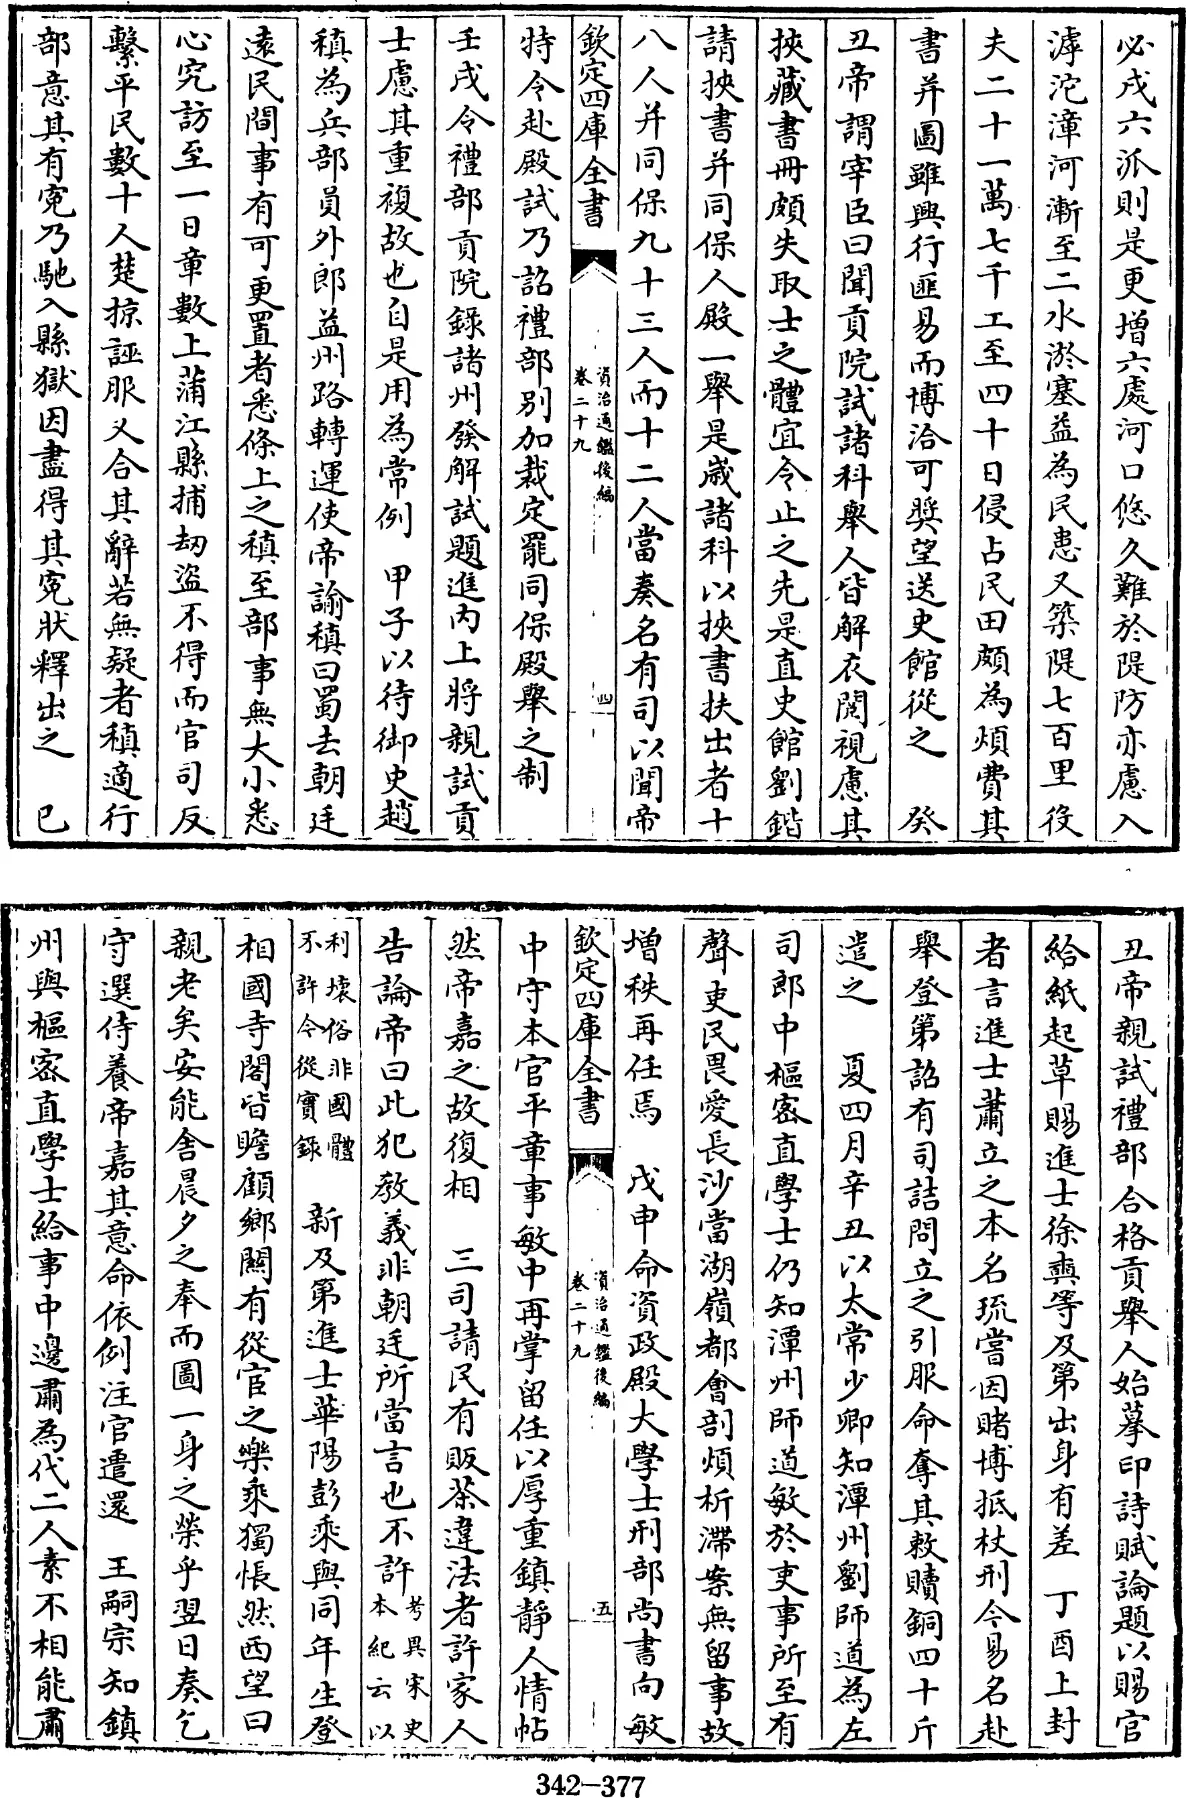 必成六派則是更增六處河口悠久難於隄防亦慮入
滹沱漳河漸至二水淤塞益為民患又築隄七百里役
夫二十一萬七千工至四十日侵占民田頗為煩費其
書并圖雖興行匪易而博洽可奬望送史館從之　癸
丑帝謂宰臣曰聞貢院試諸科舉人皆解衣閲視慮其
挾藏書冊頗失取士之體宜令止之先是直史館劉鍇
請挾書并同保人殿一舉是歲諸科以挾書扶出者十
八人并同保九十三人而十二人當奏名有司以聞帝
欽定四庫全書
資治通鑑後編
卷二十九
四
特令赴殿試乃詔禮部別加裁定罷同保殿舉之制
壬戌令禮部貢院錄諸州發解試題進內上將親試貢
士慮其重複故也自是用為常例　甲子以待御史趙
稹為兵部員外郎益州路轉運使帝諭稹曰蜀去朝廷
遠民間事有可更置者悉條上之稹至部事無大小悉
心究訪至一日章數上蒲江縣捕刼盜不得而官司反
繫平民數十人楚掠誣服又合其辭若無疑者稹適行
部意其有寃乃馳入縣獄因盡得其寃狀釋出之　己
丑帝親試禮部合格貢舉人始摹印詩賦論題以賜官
給紙起草賜進士徐奭等及第出身有差　丁酉上封
者言進士蕭立之本名琉嘗因賭博抵杖刑今易名赴
舉登第詔有司詰問立之引服命奪其敕贖銅四十斤
遣之　夏四月辛丑以太常少卿知潭州劉師道為左
司郎中樞密直學士仍知潭州師道敏於吏事所至有
聲吏民畏愛長沙當湖嶺都會剖煩析滯案無留事故
增秩再任焉　戊申命資政殿大學士刑部尚書向敏
欽定四庫全書
資治通鑑後編
卷二十九
五
中守本官平章事敏中再掌留任以厚重鎮靜人情帖
然帝嘉之故復相　三司請民有販茶違法者許家人
告論帝曰此犯敎義非朝廷所當言也不許考異宋史
本紀云以
利壞俗非國體
不許今從實錄　新及第進士華陽彭乘與同年生登
相國寺閣皆瞻顧鄉闗有從宦之樂乘獨悵然西望曰
親老矣安能舍晨夕之奉而圖一身之榮乎翌日奏乞
守選侍養帝嘉其意命依例注官遣還　王嗣宗知鎮
州與樞密直學士給事中邊肅為代二人素不相能肅
342-377